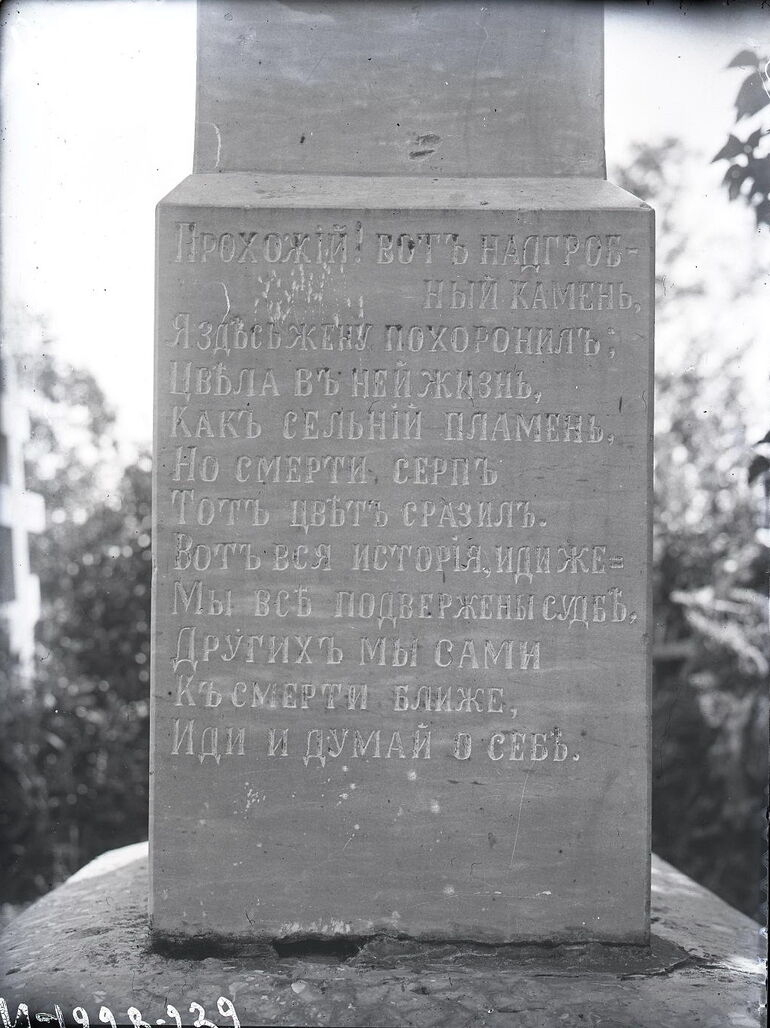 Прохожій! вотъ надгроб-
ный камень,
Я здѣсь жену похоронилъ;
Цвѣла въ ней жизнь,
Какъ сельній пламень,
Но смерти серпъ
Тотъ цвѣтъ сразилъ.
Вотъ вся исторія, иди же=
Мы всѣ подвержены судбѣ,
Другихъ мы сами
Къ смерти ближе,
Иди и думай о себѣ.